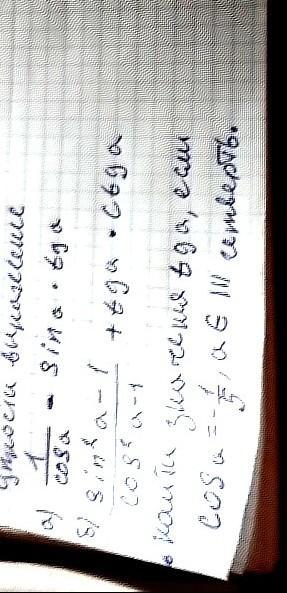 Упрости выражение
а) 1/cosa - sina · tga
б) sin²a-1/cos²a-1 + tga · ctga
• найти значения tga, если
cosa = -1/5, a ∈ III четверть.